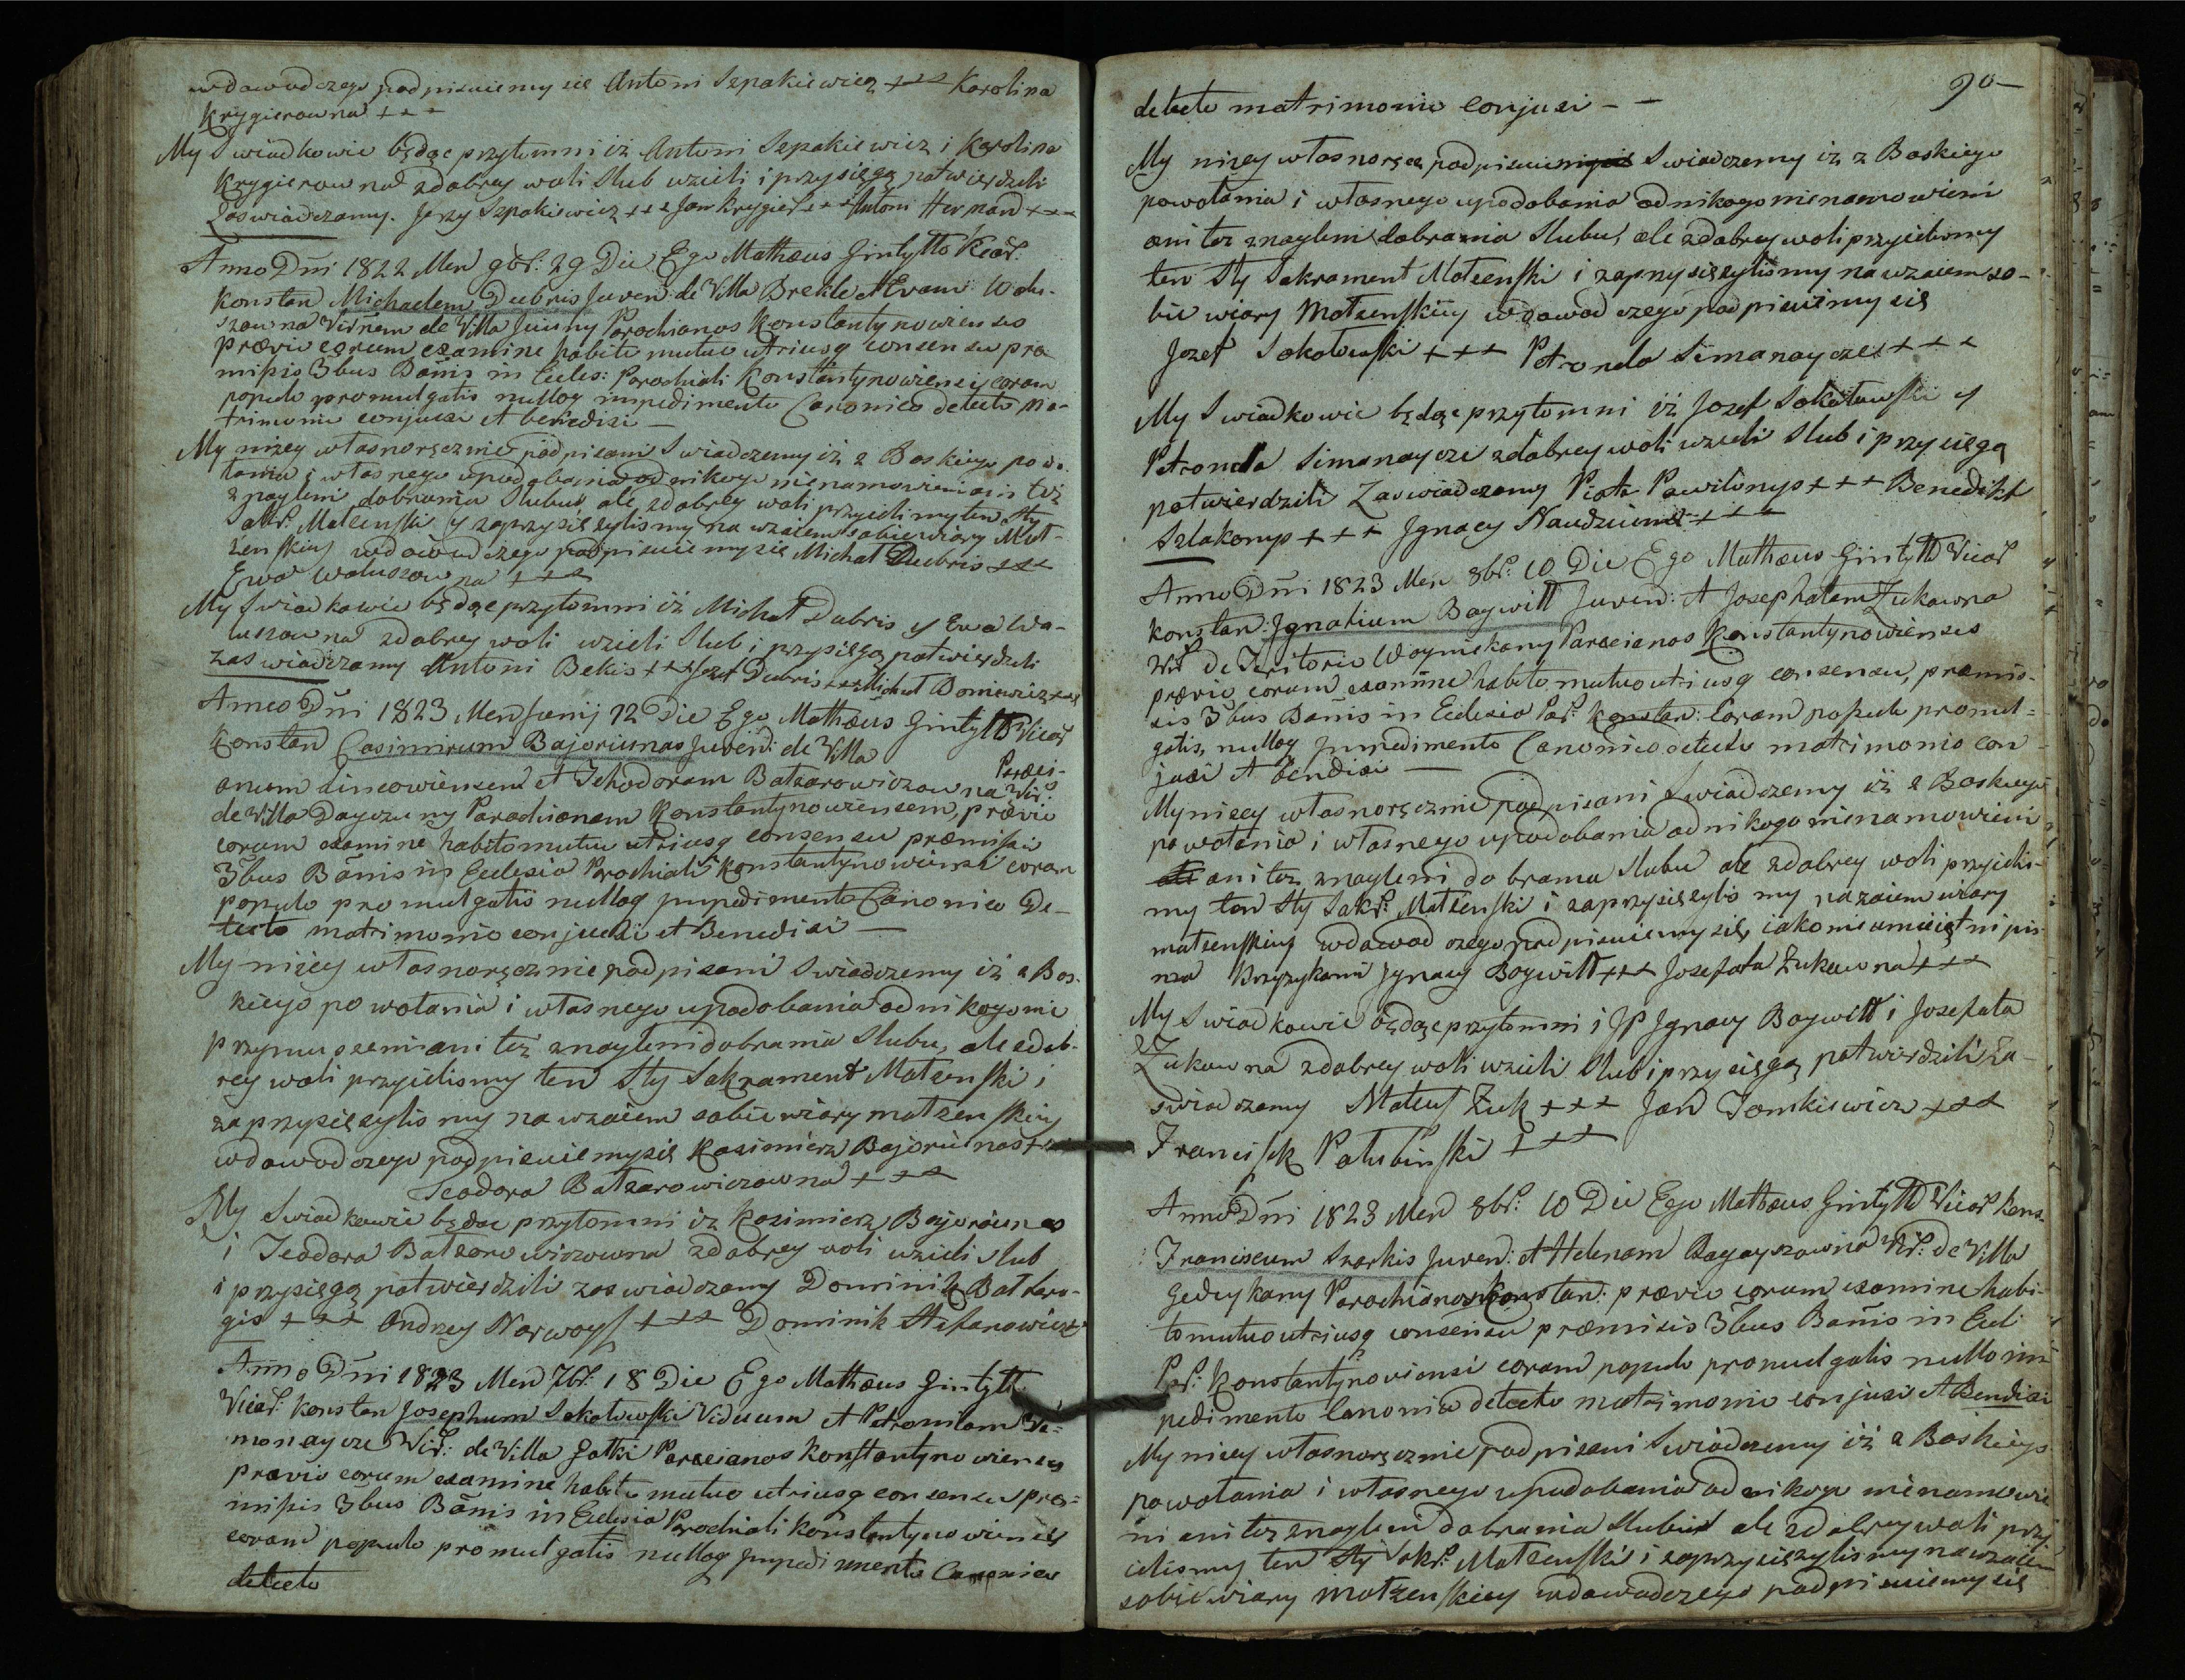 wdawod czego podpisuiemy się Antoni Szpakiewicz +++ Karolina
Krygierowna +++
My Swiadkowie będąc przytomni iż Antoni Szpakiewicz i Karolina
Krygierowna zdobrey woli Slub wzieli i przysięgą potwierdzili
Zaswiadczamy. Jerzy Szpakiewicz +++ Jan Krygier +++ Antoni Herman +++
Anno Dni 1822 Men 9br: 29 Die Ego Mathæus Gintyłło Vicar:
Konstan Michaelem Dubris Juven: de Villa Brekle et Evam Walu-
szowna Virñem de Villa Juciuny Parochianos Konstantynowienses
prævio eorum examine habito mutuo utriusq consensu præ
missis 3bus Bañis in Eccles: Parochiali Konstantynowiensi coram
populo promulgatis nulloq impedimento Canonico detecto Ma-
trimonio conjuxi et benedixi —
My niżey własnoręcznie podpisani Swiadczemy iż z Boskiego powo-
łania i własnego upodobania od nikogo nienamowieni ani też
znagleni dobrania Slubu ale zdobrey woli przyieli my ten Sty
Sakr: Małzenski y zaprzysięzylismy na wzaiem sobie wiary Mał-
żenskiey wdowod czego podpisuiemy się Michał Dubris +++
Ewa Waluszowna +++
My Swiadkowie będąc przytomni iż Michał Dubris y Ewa Wa-
luszowna zdobrey woli wzieli Slub i przysięgą potwierdzili
zaswiadczamy Antoni Bekis +++ Jozef Dubris +++ Michał Boniewicz +++
Anno Dni 1823 Men Junij 12 Die Ego Mathæus Gintyłło Vicar
Konstan Casimirum Bajoriunas Juven: de Villa
Paroci-
anum Linkowiensem et Tehodoram Balzarowiczowna Vir:
de Villa Dayczuny Parochianam Konstantynowiensem, prævio
eorum examine habito mutuo utriusq consensu præmissis
3bus Bañis in Ecclesia Parochiali Konstantynowiensi coram
populo promulgatis nulloq impedimento Canonico De-
tecto matrimonio conjuxi et Benedixi —
My niżey własnoręcznie podpisani Swiadczemy iż z Bos-
kiego powołania i własnego upodobania od nikogo nie
przymuszeni ani też znagleni dobrania Slubu, ale zdob-
rey woli przyielismy ten Sty Sakrament Małzenski i
zaprzysięzylismy na wzaiem sobie wiary małzenskiey
wdowod czego podpisuiemy się Kazimierz Bajoriunas +++
Teodora Balzarowiczowna +++
My Swiadkowie będąc przytomni iz Kazimierz Bajoriunas
i Teodora Balzarowiczowna zdobrey woli wzieli Slub
i przysięgą potwierdzili zaswiadczamy Dominik Baltaro-
gis +++ Andrzey Norwoysz +++ Dominik Stefanowicz
Anno Dni 1823 Men 7br: 18 Die Ego Mathæus Gintyłło
Vicar: Konstan Josephum Sokołowski Viduum et Petronelam Si-
monaycze Vir: de Villa Gatki Parocianos Konstantynowienses
prævio eorum examine habito mutuo utriusq consensu præ-
missis 3bus Bañis in Ecclesia Parochiali Konstantynowiensi
coram populo promulgatis nulloq impedimento Canonico
detecto
90—
detecto matrimonio conjuxi - -
My niżey własnoręcz podpisuiemysię Swiadczemy iż z Boskiego
powołania i własnego upodobania od nikogo nienamowieni
ani też znagleni dobrania Slubu, ale zdobrey woli przyielismy
ten Sty Sakrament Małzenski i zaprzysięzylismy na wzaiem so-
bie wiary Małzenskiey wdowod czego podpisuiemy się
Jozef Sokołowski +++ Petronela Simanaycze +++
My Swiadkowie będąc przytomni iż Jozef Sokołowski y
Petronella Simanaycze zdobrey woli wzieli Slub i przysięgą
potwierdzili Zaswiadczamy Piotr Pawilonys +++ Benedikt
Szlakonys +++ Jgnacy Naudziunas +++
Anno Dni 1823 Men 8br: 10 Die Ego Mathæus Gintyłło Vicar
Konstan: Jgnatium Boywiłł Juven: et Josephatam Zukowna
Vir de Territorio Woyniekany Parocianos Konstantynowienses
prævio eorum examine habito mutuo utriusq consensu, præmis-
sis 3bus Bañis in Eclesia Par: Konstan: Coram populo promul-
gatis, nulloq Jmpedimento Canonico detecto matrimonio con-
juxi et bendixi —
My niżey własnoręcznie podpisani Swiadczemy iż z Boskiego
powołania i własnego upodobania od nikogo nienamowieni
ani tez znagleni do brania Slubu ale zdobrey woli przyielis-
my ten Sty Sakr: Małzenski i zaprzysięzylismy nazaiem wiary
małzenskiey wdowod czego podpisuiemy się, iako nieumieiętni pis-
ma Krzyzykami Jgnacy Boywiłł +++ Josefata Zukowna +++
My Swiadkowie będąc przytomni i JP Jgnacy Boywiłł i Josefata
Zukowna zdobrey woli wzieli Slub i przysięgą potwierdzili Za-
swiadczamy Mateusz Zuk +++ Jan Tomkiewicz +++
Franciszk Połubinski +++
Anno Dni 1823 Men 8br: 10 Die Ego Mathæus Gintyłło Vicar Kons-
Franciscum Szarkis Juven: et Helenam Ragayszowna Vir: de Villa
Gedeykany Parochianos Konstan: prævio eorum examine habi-
to mutuo utriusq consensu præmissis 3bus Bañis in Ecl
Par: Konstantynoviensi coram populo promulgatis nullo im
pedimento Canonico detecto matrimonio conjuxi et Bendixi
My niżey własnoręcznie podpisani Swiadczemy iż z Boskiego
powołania i własnego upodobania od nikogo nienamowie
ni ani też znagleni dobrania Slubu ale zdobrey woli przy
ielismy ten Sty Sakr: Małzenski i zaprzysięzylismy nawzaiem
sobie wiary Małzenskiey wdowod czego podpisuiemy się